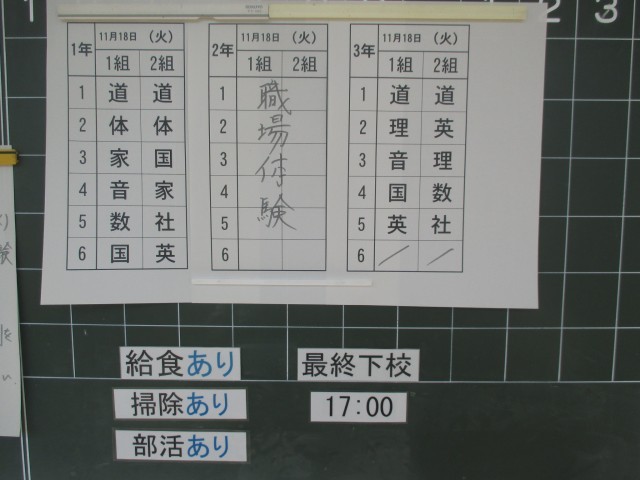 1 2 3
1年 11月18日 （火）
1組 2組
1 道 道
2 体 体
3 家 国
4 音 家
5 数 社
6 国 英
2年 11月18日 （火）
1組 2組
1
2
3
4
5
6
職場体験
3年 11月18日 （火）
1組 2組
1 道 道
2 理 英
3 音 理
4 国 数
5 英 社
6 ／ ／
給食あり
掃除あり
部活あり
最終下校
17:00